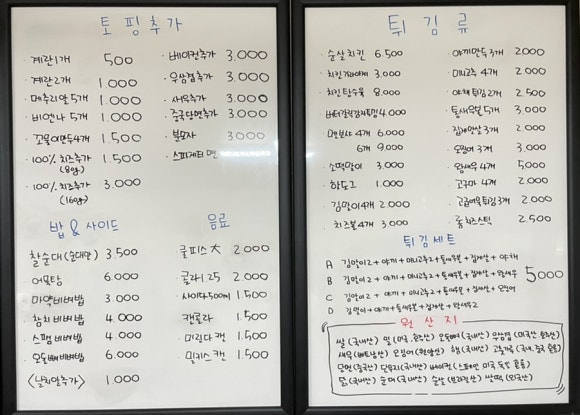 토핑추가
계란1개 500
계란2개 1.000
메추리알5개 1.000
비엔나 5개 1.000
꼬물이만두4개 1.500
100% 치즈추가 1.500
(80g)
100% 치즈추가 3.000
(160g)
베이컨추가 3.000
우삼겹추가 3.000
새우추가 3.000
중국당면추가 3.000
분모자 3000
스파게티 면
밥 & 사이드
찰순대(순대만) 3.500
어묵탕 6.000
마약비빔밥 3.000
참치비빔밥 4.000
스팸비빔밥 4.000
오돌뼈비빔밥 6.000
<날치알추가> 1.000
음료
쿨피스 大 2.000
콜라1.25 2.000
사이다500ml 1.500
캔콜라 1.500
미린다 캔 1.500
밀키스 캔 1.500
튀김류
순살치킨 6.500
3.000
치킨탕수육 8.000
4.000
4개 6.000
6개 9.000
소떡말이 3.000
핫도그 1.000
김말이4개 2.000
치즈볼4개 3.000
야끼만두3개 2.000
미니고추 4개 2.000
야채튀김2개 2.500
통새우볼5개 3.000
집게맛살3개 2.000
오징어3개 3.000
왕새우4개 5.000
고구마 4개 2.000
고급어묵튀김3개 2.000
롱치즈스틱 2.500
튀김세트
A 김말이2 + 야끼 + 미니고추2 + 통새우볼 + 집게살 + 야채
B 김말이2 + 야끼 + 미니고추2 + 통새우볼 + 집게살 + 왕새우
C 김말이2 + 야끼 + 미니고추2 + 통새우볼 + 집게살 + 오징어
D 김말이 + 야끼 + 통새우볼 + 집게살 + 왕새우2
5000
원산지
쌀(국내산) 밀(미국, 호주산) 오돌뼈(국내산) 우삼겹(미국산 호주산)
새우(베트남산) 오징어(원양산) 햄(국내산) 고춧가루(국내.중국 혼용)
당면(중국산) 단무지(국내산) 베이컨(스페인 미국 독일 혼용)
닭(국내산) 순대(국내산) 순살(브라질산) 쌀떡(외국산)